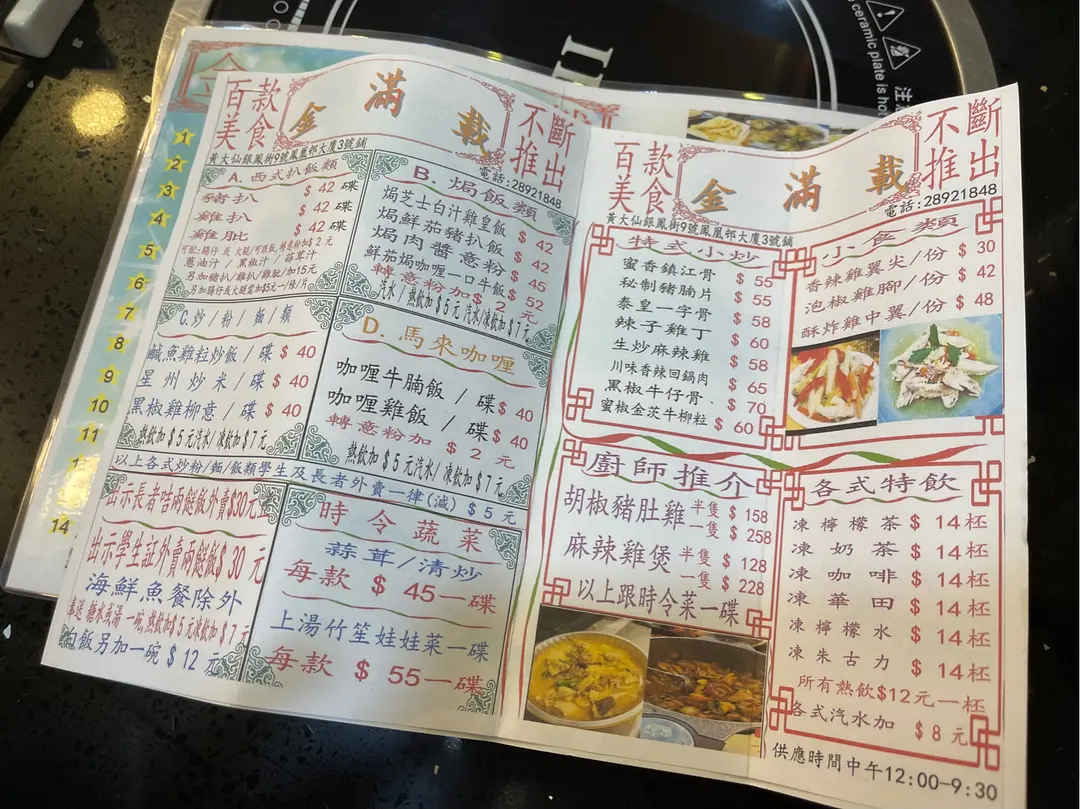 百款美食
金滿載
不斷推出
黃大仙銀鳳街9號鳳凰邨大廈3號舖
電話:28921848
A. 西式扒飯類
豬扒 $ 42 碟
雞扒 $ 42 碟
雞肶 $ 42 碟
蔥油汁 / 黑椒汁 / 蒜茸汁
另加豬扒/雞扒/雞肶/加15元
B. 焗飯類
焗芝士白汁雞皇飯 $ 42
焗鮮茄豬扒飯 $ 42
焗肉醬意粉 $ 45
鮮茄焗咖喱一口牛飯 $ 52
轉意粉加 $ 2 元
汽水/熱飲加$5元 汽水/凍飲加$7元
C.炒/粉/麵/類
鹹魚雞粒炒飯/碟 $ 40
星州炒米/碟 $ 40
黑椒雞柳意/碟 $ 40
熱飲加$5元汽水/凍飲加$7元
D. 馬來咖喱
咖喱牛腩飯 / 碟 $ 40
咖喱雞飯 / 碟 $ 40
轉意粉加 $ 2 元
熱飲加$5元汽水/凍飲加$7元
以上各式炒粉/麵/飯類學生及長者外賣一律(減) $ 5 元
出示長者咭兩餸飯外賣$30元
出示學生証外賣兩餸飯$ 30 元
海鮮,魚餐除外
糖水或湯一碗,熱飲加$5元凍飲加$7元
白飯另加一碗 $ 12 元
時令蔬菜
蒜茸/清炒
每款 $ 45一碟
上湯竹笙娃娃菜一碟
每款 $ 55一碟
百款美食
金滿載
不斷推出
黃大仙銀鳳街9號鳳凰邨大廈3號舖
電話:28921848
特式小炒
蜜香鎮江骨 $ 55
秘制豬腩片 $ 55
泰皇一字骨 $ 58
辣子雞丁 $ 60
生炒麻辣雞 $ 58
川味香辣回鍋肉 $ 65
黑椒牛仔骨 $ 70
蜜椒金茨牛柳粒 $ 60
小食類
香辣雞翼尖/份 $ 30
泡椒雞腳/份 $ 42
酥炸雞中翼/份 $ 48
廚師推介
胡椒豬肚雞 半隻 $ 158
一隻 $ 258
麻辣雞煲 半隻 $ 128
一隻 $ 228
以上跟時令菜一碟
各式特飲
凍檸檬茶 $ 14杯
凍奶茶 $ 14杯
凍咖啡 $ 14杯
凍華田 $ 14杯
凍檸檬水 $ 14杯
凍朱古力 $ 14杯
所有熱飲$12元一杯
各式汽水加 $ 8 元
供應時間中午12:00-9:30
1
2
3
4
5
6
7
8
9
10
11
14
ceramic plate is